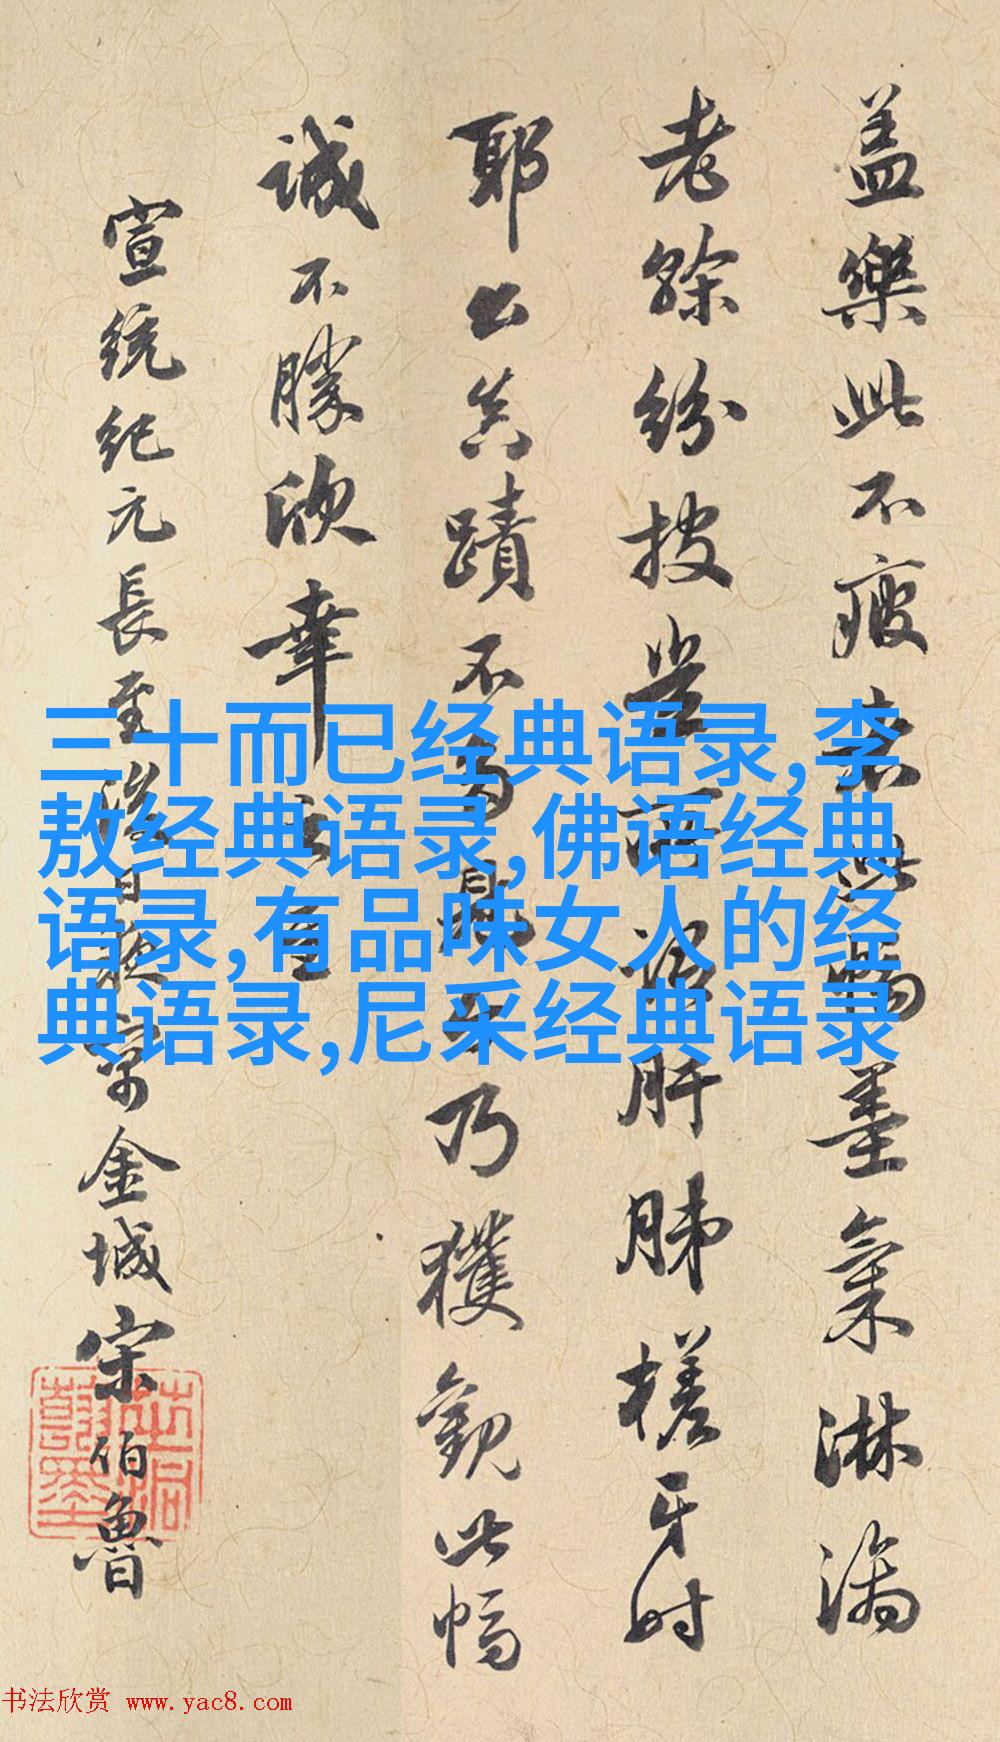 盖樂此不疲墨氣淋漓
老餘紛披豈所謂肝肺槎牙時
耶公真蹟不易乃獲觀此幅
誠不勝欣幸
宣統紀元長至後日金城宋伯魯
三十而已经典语录,李
敖经典语录,佛语经典
语录,有品味女人的经
典语录,尼采经典语录
书法欣赏 www.yac8.com